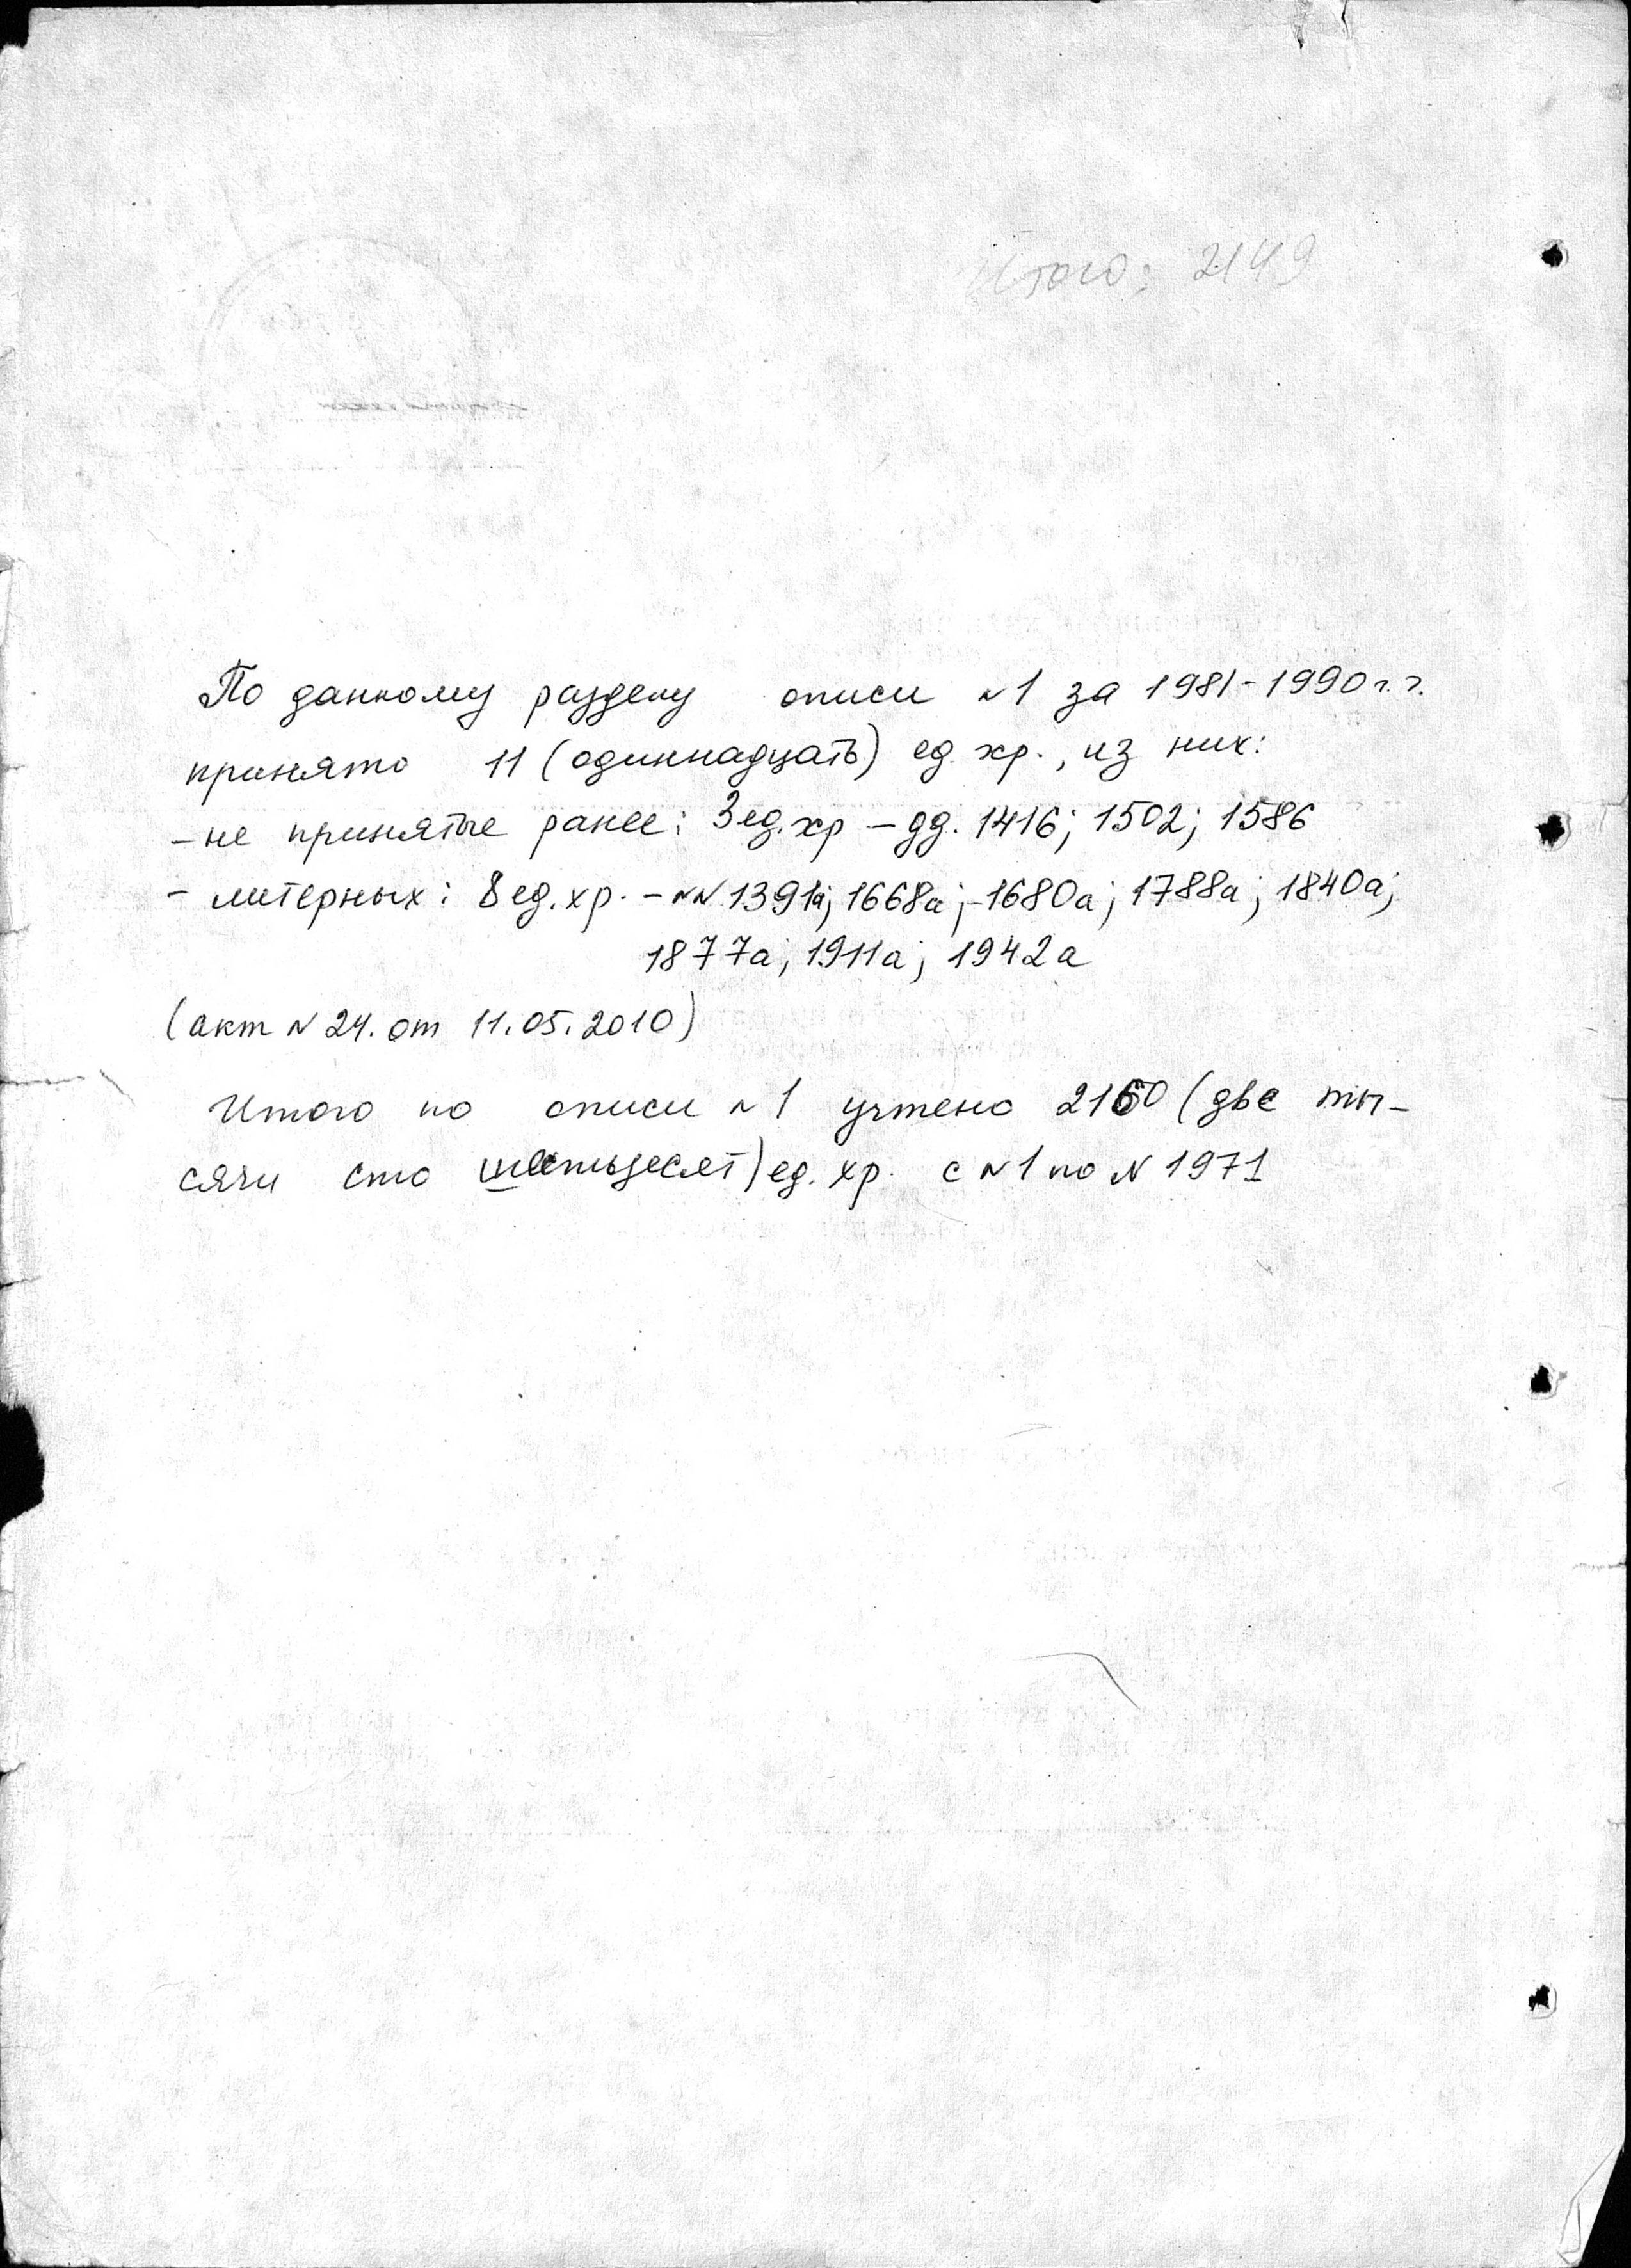 Итого: 2149
По данному разделу описи №1 за 1981-1990г.г.
принято 11 (одиннадцать) ед. хр., из них:
- не принятые ранее: 3 ед. хр - дд. 1416; 1502; 1586
- литерных: 8 ед. хр. - №№ 1391а; 1668а; 1680а; 1788а; 1840а;
1877а; 1911а; 1942а
(акт № 24. от 11.05.2010)
Итого по описи №1 учтено 2160 (две ты-
сячи сто шестьдесят) ед. хр. с №1 по № 1971